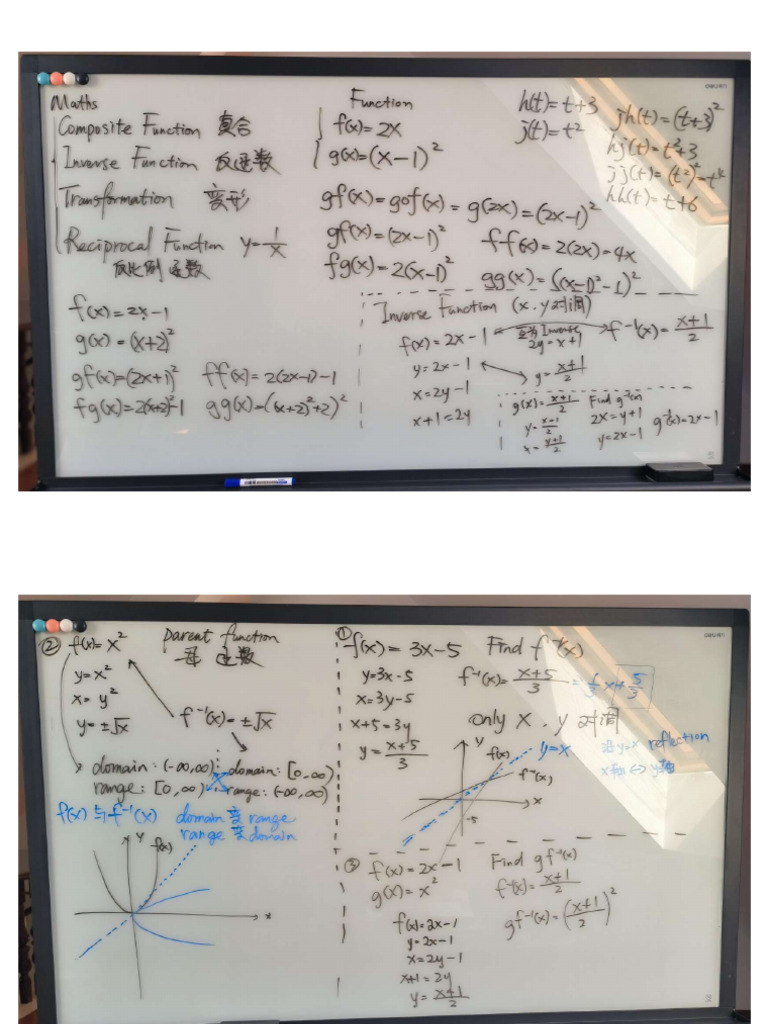 Maths
Composite Function 复合
Inverse Function 反函数
Transformation 变形
Reciprocal Function y=1/x
反比例函数
Function
f(x)=2x
g(x)=(x-1)²
gf(x)=gof(x)=g(2x)=(2x-1)²
gf(x)=(2x-1)²
ff(x)=2(2x)=4x
fg(x)=2(x-1)²
gg(x)=((x-1)²-1)²
h(t)=t+3
j(t)=t²
jh(t)=(t+3)²
hj(t)=t²+3
jj(t)=(t²)²=t⁴
hh(t)=t+6
f(x)=2x-1
g(x)=(x+2)²
gf(x)=(2x+1)²
ff(x)=2(2x-1)-1
fg(x)=2(x+2)²-1
gg(x)=((x+2)²+2)²
Inverse Function (x.y对调)
f(x)=2x-1
互为Inverse
f⁻¹(x)=(x+1)/2
2y=x+1
y=2x-1
y=(x+1)/2
x=2y-1
x+1=2y
g(x)=(x+1)/2
Find g⁻¹(x)
y=(x+1)/2
2x=y+1
x=(y+1)/2
y=2x-1
g⁻¹(x)=2x-1
② f(x)=x²
parent function
母函数
y=x²
x=y²
y=±√x
f⁻¹(x)=±√x
domain: (-∞,∞)
domain: [0,∞)
range: [0,∞)
range: (-∞,∞)
f(x)与f⁻¹(x)
domain变range
range变domain
x
y
f(x)
x
① f(x)=3x-5 Find f⁻¹(x)
y=3x-5
f⁻¹(x)=(x+5)/3=1/3 x+5/3
x=3y-5
x+5=3y
only x.y对调
y=(x+5)/3
y
f(x)
y=x
沿y=x reflection
f⁻¹(x)
x轴↔y轴
x
-5
③ f(x)=2x-1
g(x)=x²
Find gf⁻¹(x)
f⁻¹(x)=(x+1)/2
gf⁻¹(x)=((x+1)/2)²
f(x)=2x-1
y=2x-1
x=2y-1
x+1=2y
y=(x+1)/2